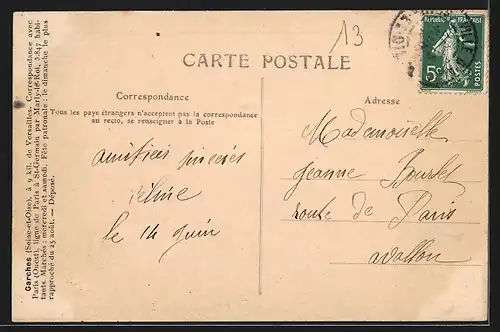 13
RÉPUBLIQUE FRANÇAISE
5c
POSTES
CARTE POSTALE
Correspondance
Tous les pays étrangers n'acceptent pas la correspondance
au recto, se renseigner à la Poste
Adresse
amitiés sincères
Céline
le 14 juin
Mademoiselle
Jeanne
route de Paris
Avallon
Garches (Seine-et-Oise), à 9 kil. de Versailles. Correspondance avec
Paris (Ouest), ligne de Paris à St-Germain par Marly-le-Roi, 2.847 habi-
tants. Marchés : mercredi et samedi. Fête patronale : le dimanche le plus
rapproché du 25 août. — Déposé.